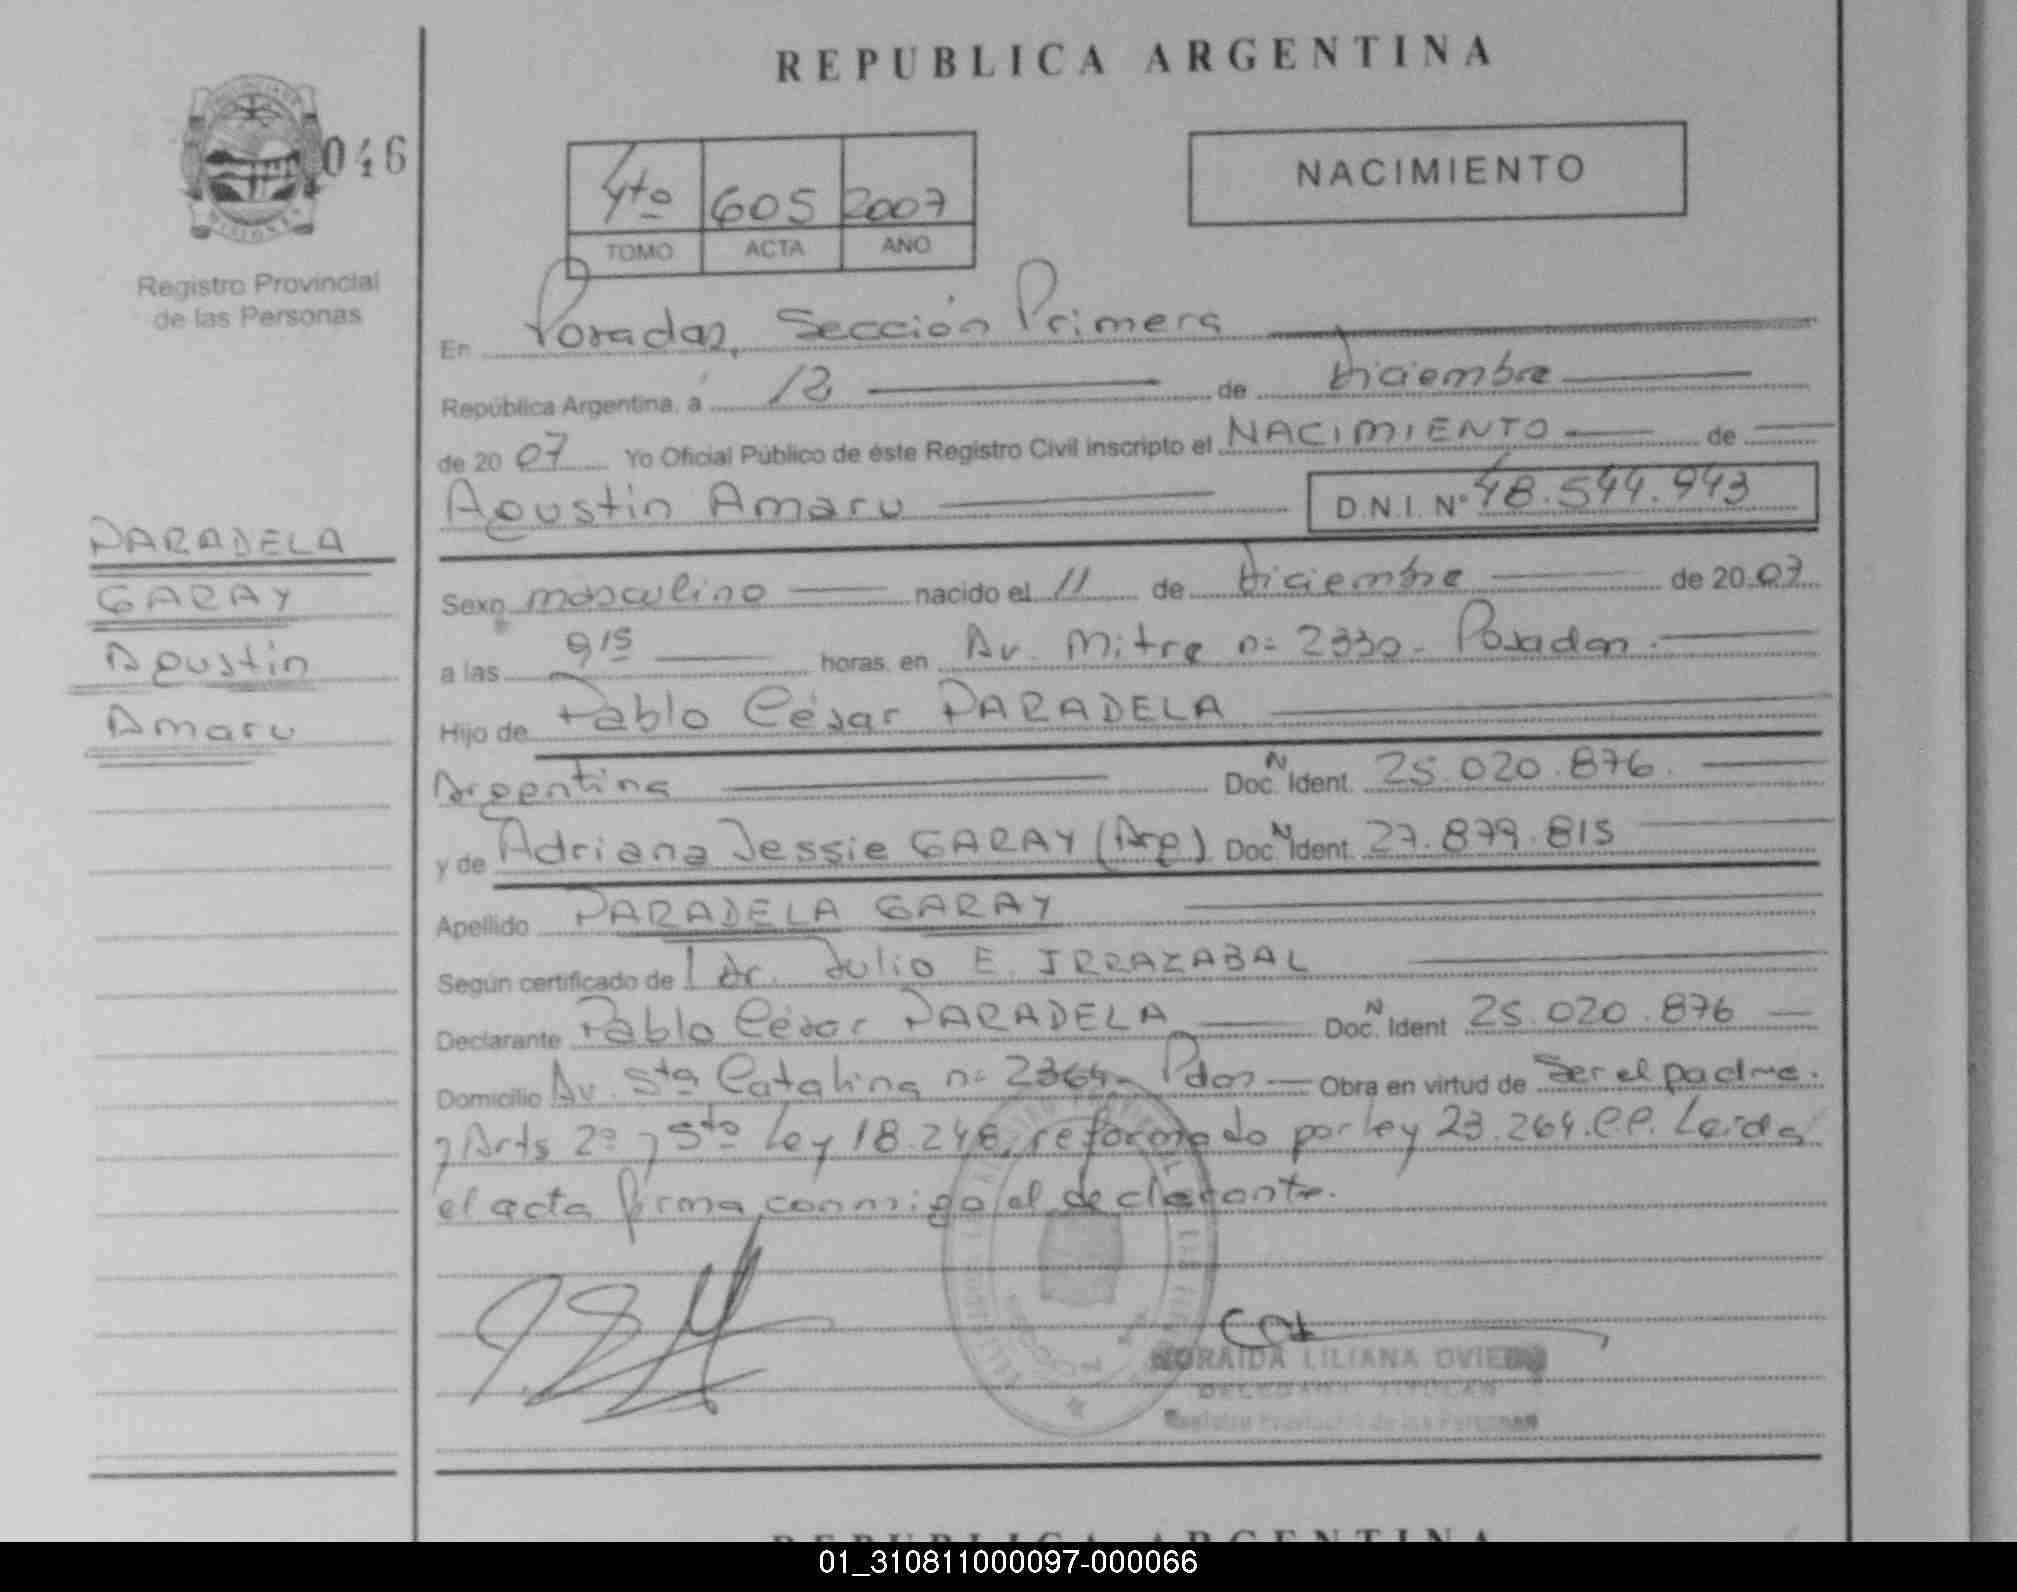 REPUBLICA ARGENTINA
046
4to 605 2007
TOMO ACTA AÑO
NACIMIENTO
Registro Provincial
de las Personas
En Posadas, Sección Primera
República Argentina, a 12 de Diciembre
de 2007 Yo Oficial Público de éste Registro Civil inscripto el NACIMIENTO de
Agustin Amaru D.N.I. Nº 48.544.943
PARADELA
GARAY
Agustin
Amaru
Sexo masculino nacido el 11 de Diciembre de 2007
a las 9 15 horas, en Av. Mitre nº 2330. Posadas.
Hijo de Pablo César PARADELA
Argentina Doc. N Ident. 25.020.876.
y de Adriana Jessie GARAY (Arg) Doc. N Ident. 27.879.815
Apellido PARADELA GARAY
Según certificado de Dr. Julio E. IRRAZABAL
Declarante Pablo César PARADELA Doc. N Ident 25.020.876
Domicilio Av. Sta Catalina nº 2364. Pdas Obra en virtud de Ser el padre.
y Arts 2º y 5to Ley 18.248, reformado por ley 23.264. Leída
el acta firma conmigo el declarante.
LILIANA OVIEDO
DELEGADA TITULAR
Registro Provincial de las Personas
REPUBLICA ARGENTINA
01_310811000097-000066